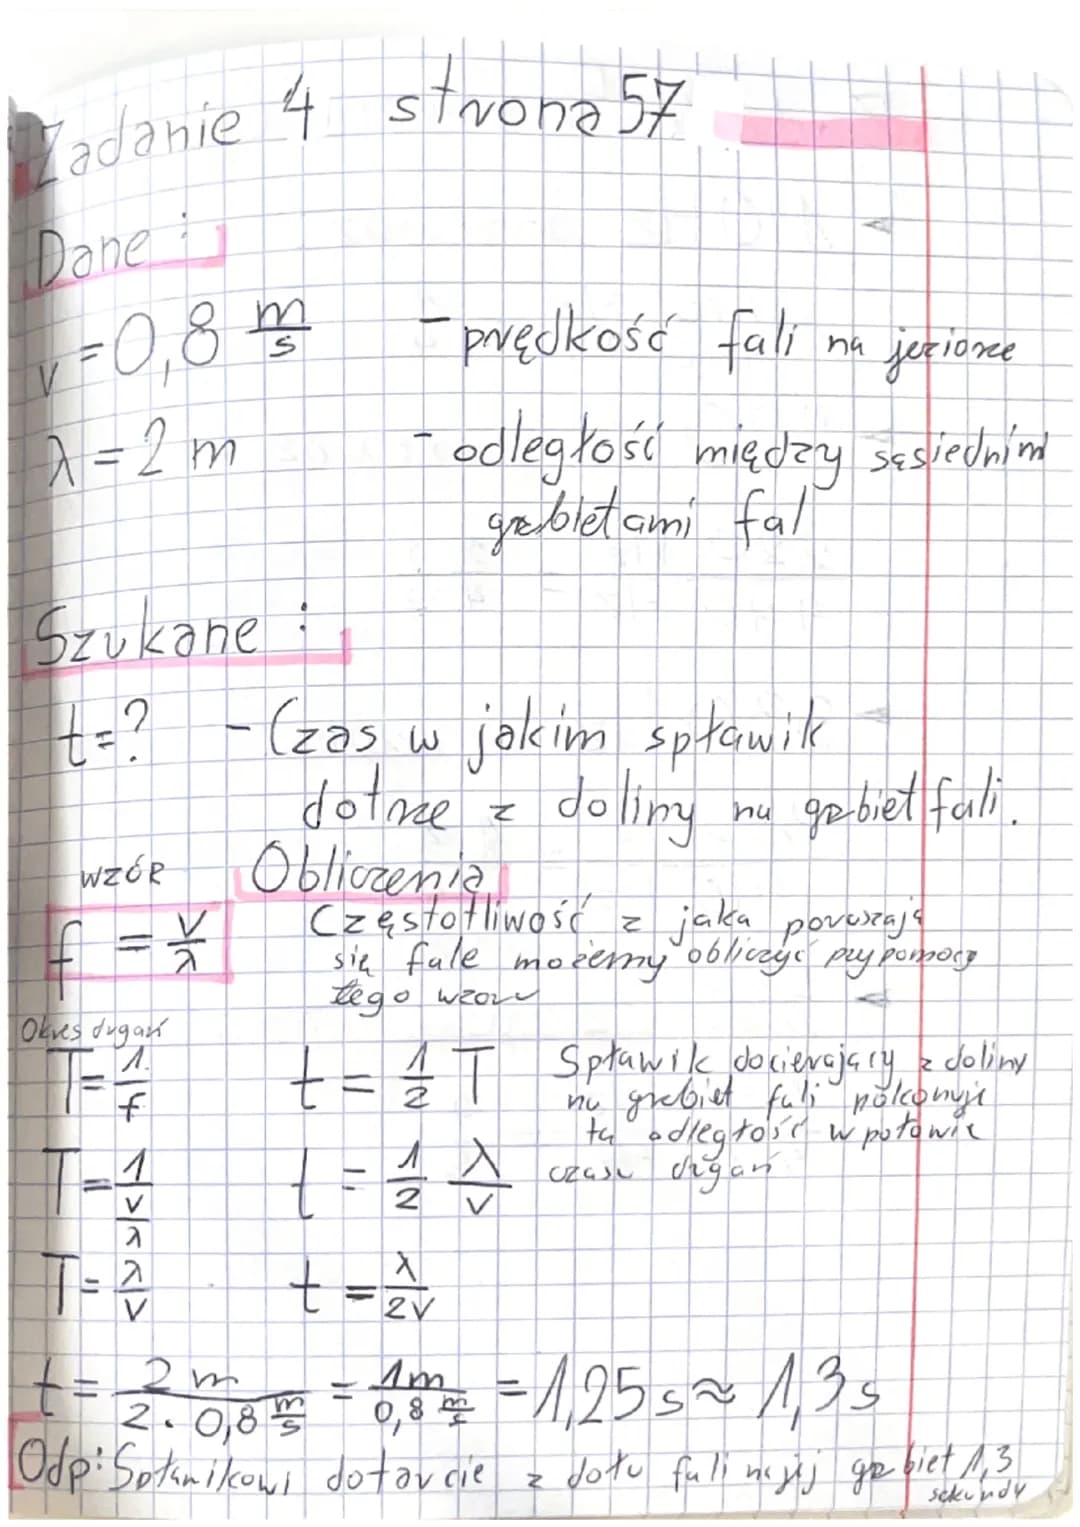 Zadanie 4 strona 57
Dane:
v = 0,8 m/s - prędkość fali na jeziorze
λ = 2 m - odległość między sąsiednimi
grzbietami fal
Szukane:
t = ? - Czas w jakim spławik
dotrze z doliny na grzbiet fali.
WZÓR Obliczenia
f = v/λ Częstotliwość z jaka poruszają
się fale możemy obliczyć przy pomocy
tego wzoru
Okres drgań
T = 1/f t = 1/2 T Spławik docierający z doliny
na grzbiet fali pokonuje
tą odległość w połowie
T = 1/(v/λ) t = 1/2 λ/v czasu drgań
T = λ/v t = λ/2v
t = 2 m/(2 · 0,8 m/s) = 1 m/(0,8 m/s) = 1,25 s ≈ 1,3 s
Odp: Spławikowi dotarcie z dołu fali na jej grzbiet 1,3
sekundy